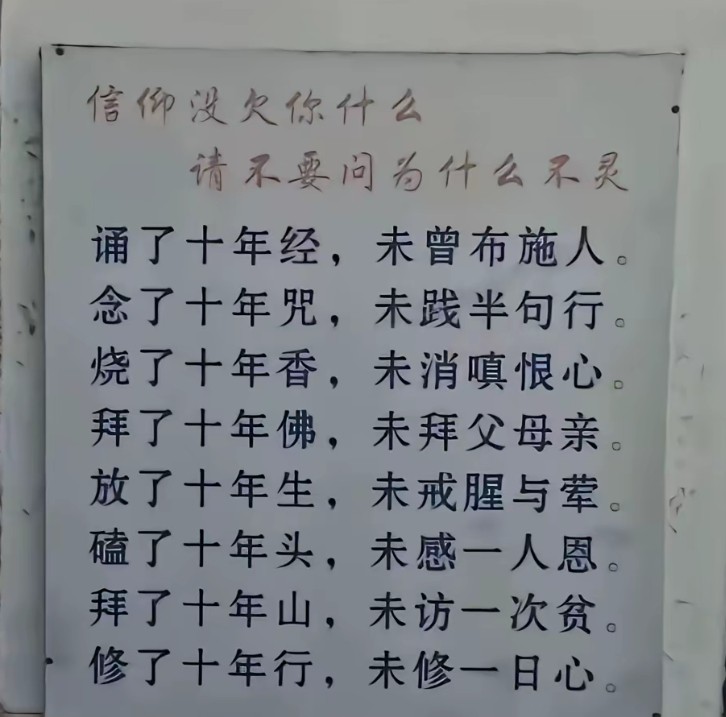 信仰没欠你什么
请不要问为什么不灵
诵了十年经，未曾布施人。
念了十年咒，未践半句行。
烧了十年香，未消嗔恨心。
拜了十年佛，未拜父母亲。
放了十年生，未戒腥与荤。
磕了十年头，未感一人恩。
拜了十年山，未访一次贫。
修了十年行，未修一日心。